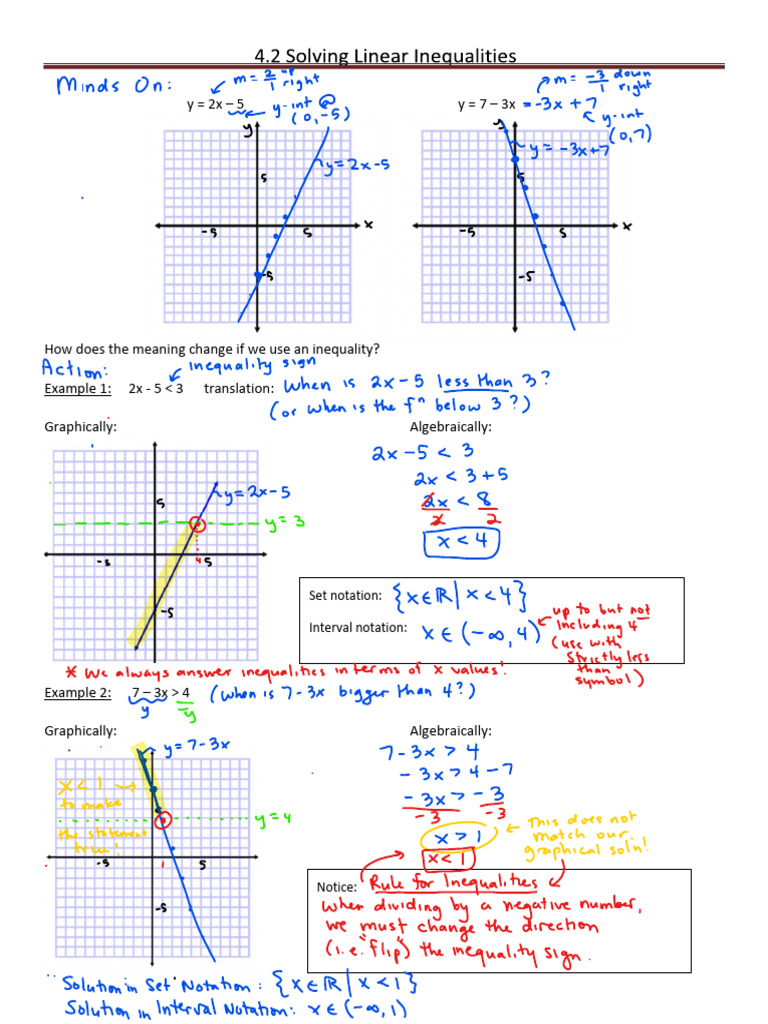 4.2 Solving Linear Inequalities
Minds On:
m = 2/1 up right
y = 2x – 5
y-int @ (0,-5)
m = -3/1 down right
y = 7 – 3x = -3x + 7
y-int (0,7)
y
5
y = 2x - 5
-5
5
x
-5
y
y = -3x+7
5
-5
5
x
-5
How does the meaning change if we use an inequality?
Action:
inequality sign
Example 1: 2x - 5 < 3 translation: When is 2x - 5 less than 3?
(or when is the fⁿ below 3?)
Graphically:
Algebraically:
5
y = 2x - 5
y = 3
-5
4
5
-5
2x - 5 < 3
2x < 3 + 5
2x < 8
2 2
x < 4
Set notation: {x∈ℝ | x < 4}
Interval notation: x ∈ (-∞, 4)
up to but not
including 4
(use with
strictly less
than
symbol)
* We always answer inequalities in terms of x values!
Example 2: 7 – 3x > 4 (when is 7 - 3x bigger than 4?)
y y
Graphically:
Algebraically:
y = 7 - 3x
x < 1
to make
the statement
true!
y = 4
-5
1
5
-5
7 - 3x > 4
- 3x > 4 - 7
- 3x > - 3
-3 -3
x > 1
x < 1
This does not
match our
graphical soln!
Notice: Rule for Inequalities
When dividing by a negative number,
we must change the direction
(i.e. "flip") the inequality sign.
Solution in Set Notation: {x∈ℝ | x < 1}
Solution in Interval Notation: x ∈ (-∞, 1)